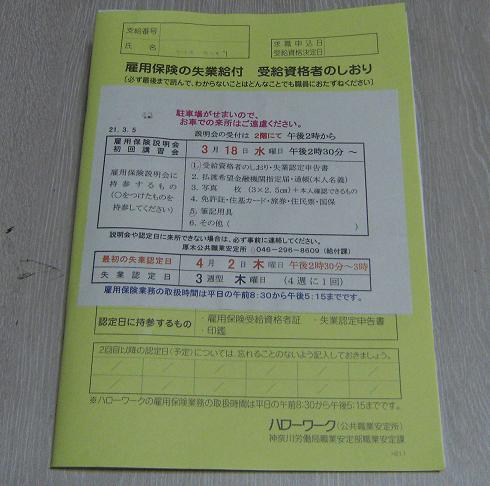 支給番号
氏名
求職申込日
受給資格決定日
雇用保険の失業給付 受給資格者のしおり
(必ず最後まで読んで、わからないことはどんなことでも職員におたずねください)
駐車場がせまいので、
お車での来所はご遠慮ください。
21.3.5
説明会の受付は 2階にて 午後2時から
雇用保険説明会
初回講習会
3月18日 水曜日 午後2時30分~
雇用保険説明会に
持参するもの
(○をつけたものを
持参してください)
1.受給資格者のしおり・失業認定申告書
2.払渡希望金融機関指定届・通帳(本人名義)
3.写真 枚(3×2.5㎝)+本人確認できるもの
4.免許証・住基カード・旅券・住民票・国保
5.筆記用具
6.その他( )
説明会や認定日に来所できない場合は、必ず事前に連絡してください。
厚木公共職業安定所 046-296-8609(給付課)
最初の失業認定日
4月2日 木曜日 午後2時30分~3時
失業認定日
3週型 木曜日 (4週に1回)
雇用保険業務の取扱時間は平日の午前8:30から午後5:15までです。
認定日に持参するもの
・雇用保険受給資格者証 ・失業認定申告書
・印鑑
2回目以降の認定日(予定)については、忘れることのないよう記入しておきましょう。
※ハローワークの雇用保険業務の取扱時間は平日の午前8:30から午後5:15までです。
ハローワーク(公共職業安定所)
神奈川労働局職業安定部職業安定課